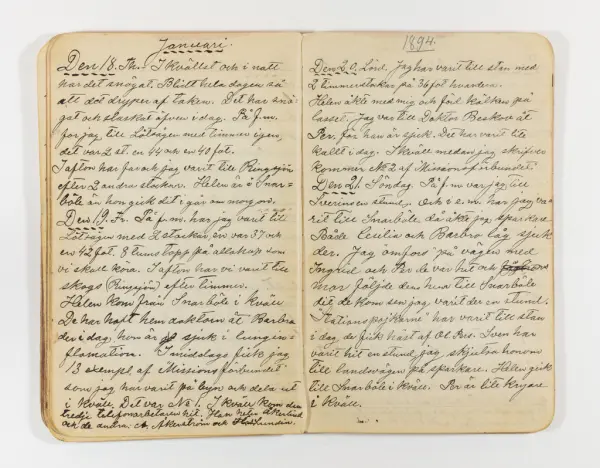 Januari.
Den 18. Th. I kvällst och i natt
har det snögat. Blött hela dagen så
att det dryper af taken. Det har snö=
gat och slasket äfven i dag. På f.m.
for jag till Lötsågen med timmer igen,
det var 2 st. en 44 och en 40 fot.
I afton har far och jag varit till
efter 2 andra stockar. Helen är i Snar=
böle hon gick dit i går om morgon.
Den 19. Fr. På f.m. har jag varit till
Lötsågen med 2 stockar, en var 37 och
en 42 fot. 8 tums topp på alla kap som
vi skall köra. I afton har vi varit till
skogs efter timmer.
Helen kom från Snarböle i kväll
De har haft hem doktorn åt Barbro
der i dag, hon är sjuk i lungin=
flamation. I middags fick jag
13 exempl. af Missionsförbundet
som jag har varit på byn och dela ut
i kväll. Det var No 1. I kväll kom den
tredje telefonarbetaren hit. Han heter Åkerlund
och de andra: Åkerström och
1894.
Den 20. Lörd. Jag har varit till stan med
2 timmerstockar på 36 fot hvardera.
Helen åkte med mig och före kälken på
lasset. Jag var till Doktor Beskov åt
Per. för han är sjuk. Det har varit lite
kallt i dag. I kväll medan jag skrifver
kommer No 2 af Missionsförbundet.
Den 21. Söndag. På f.m. var jag till
en stund, och e.m. har jag va=
rit till Snarböle då åkte jag sparkare
Både Cecilia och Barbro låg sjuk
der. Jag "omfors" på vägen med
Ingrid och Per de var hit och
mor följde dem hem till Snarböle
dit de kom sen jag varit der en stund.
Stationspojkarne har varit till stan
i dag, de fick häst af Ol Pers. Sven har
varit hit en stund jag skjutsa honom
till landsvägen på sparkare. Helen gick
till Snarböle i kväll. Per är lite kryare
i kväll.